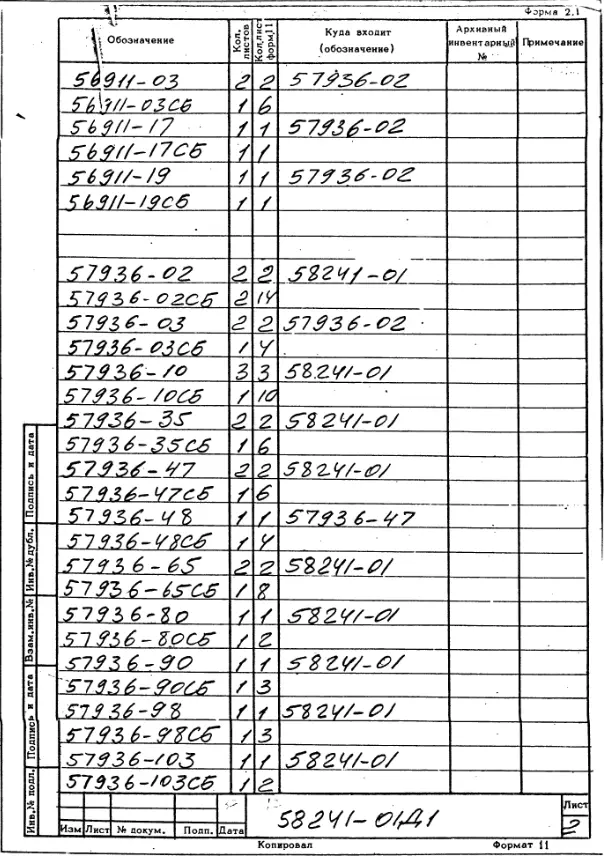 Форма 2.1
Обозначение Кол. листов Кол. лист форм. 11 Куда входит (обозначение) Архивный инвентарный № Примечание
56911-03 2 2 57936-02
56911-03СБ 1 6
56911-17 1 1 57936-02
56911-17СБ 1 1
56911-19 1 1 57936-02
56911-19СБ 1 1
57936-02 2 2 58241-01
57936-02СБ 2 14
57936-03 2 2 57936-02
57936-03СБ 1 4
57936-10 3 3 58241-01
57936-10СБ 1 10
57936-35 2 2 58241-01
57936-35СБ 1 6
57936-47 2 2 58241-01
57936-47СБ 1 6
57936-48 1 1 57936-47
57936-48СБ 1 4
57936-65 2 2 58241-01
57936-65СБ 1 8
57936-80 1 1 58241-01
57936-80СБ 1 2
57936-90 1 1 58241-01
57936-90СБ 1 3
57936-98 1 1 58241-01
57936-98СБ 1 3
57936-103 1 1 58241-01
57936-103СБ 1 2
Подпись и дата
Инв.№ дубл.
Взам.инв.№
Подпись и дата
Инв.№ подл.
58241-01Д1
Лист
2
Изм Лист № докум. Подп. Дата
Копировал Формат 11